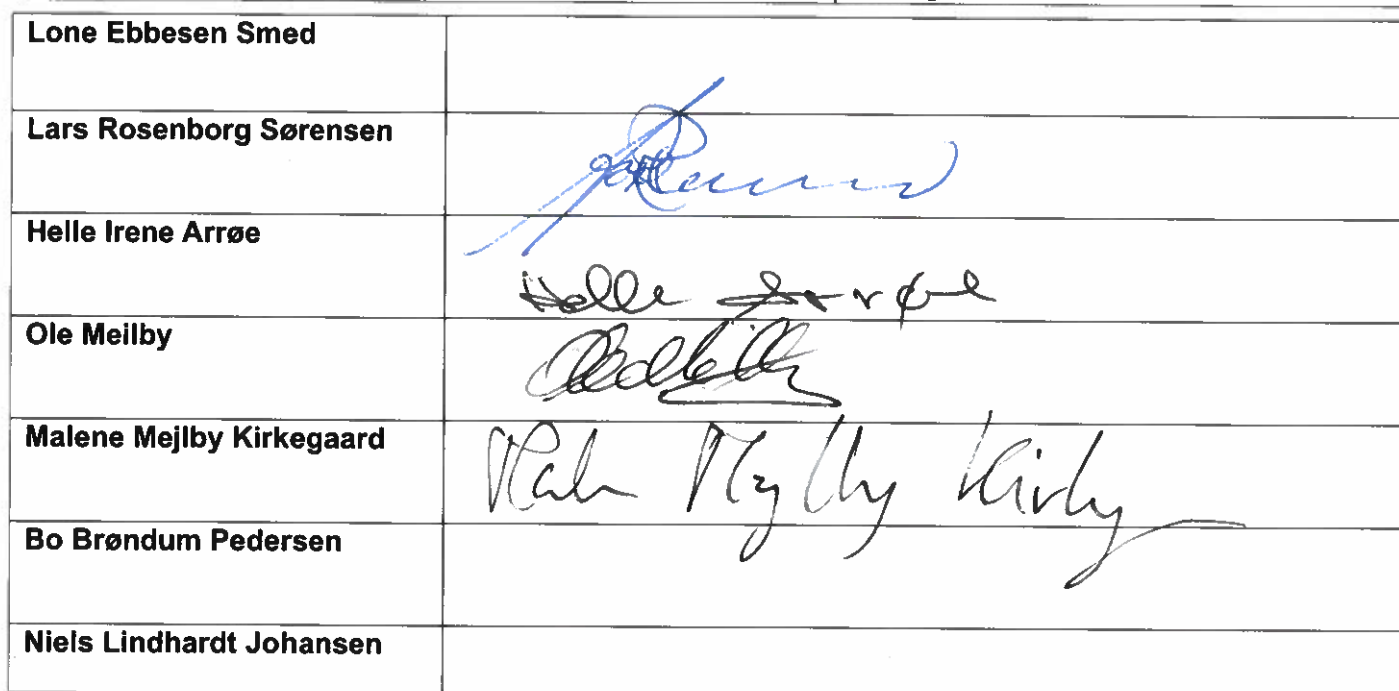 Lone Ebbesen Smed
Lars Rosenborg Sørensen
Helle Irene Arrøe
Helle Arrøe
Ole Meilby
Malene Mejlby Kirkegaard
Bo Brøndum Pedersen
Niels Lindhardt Johansen